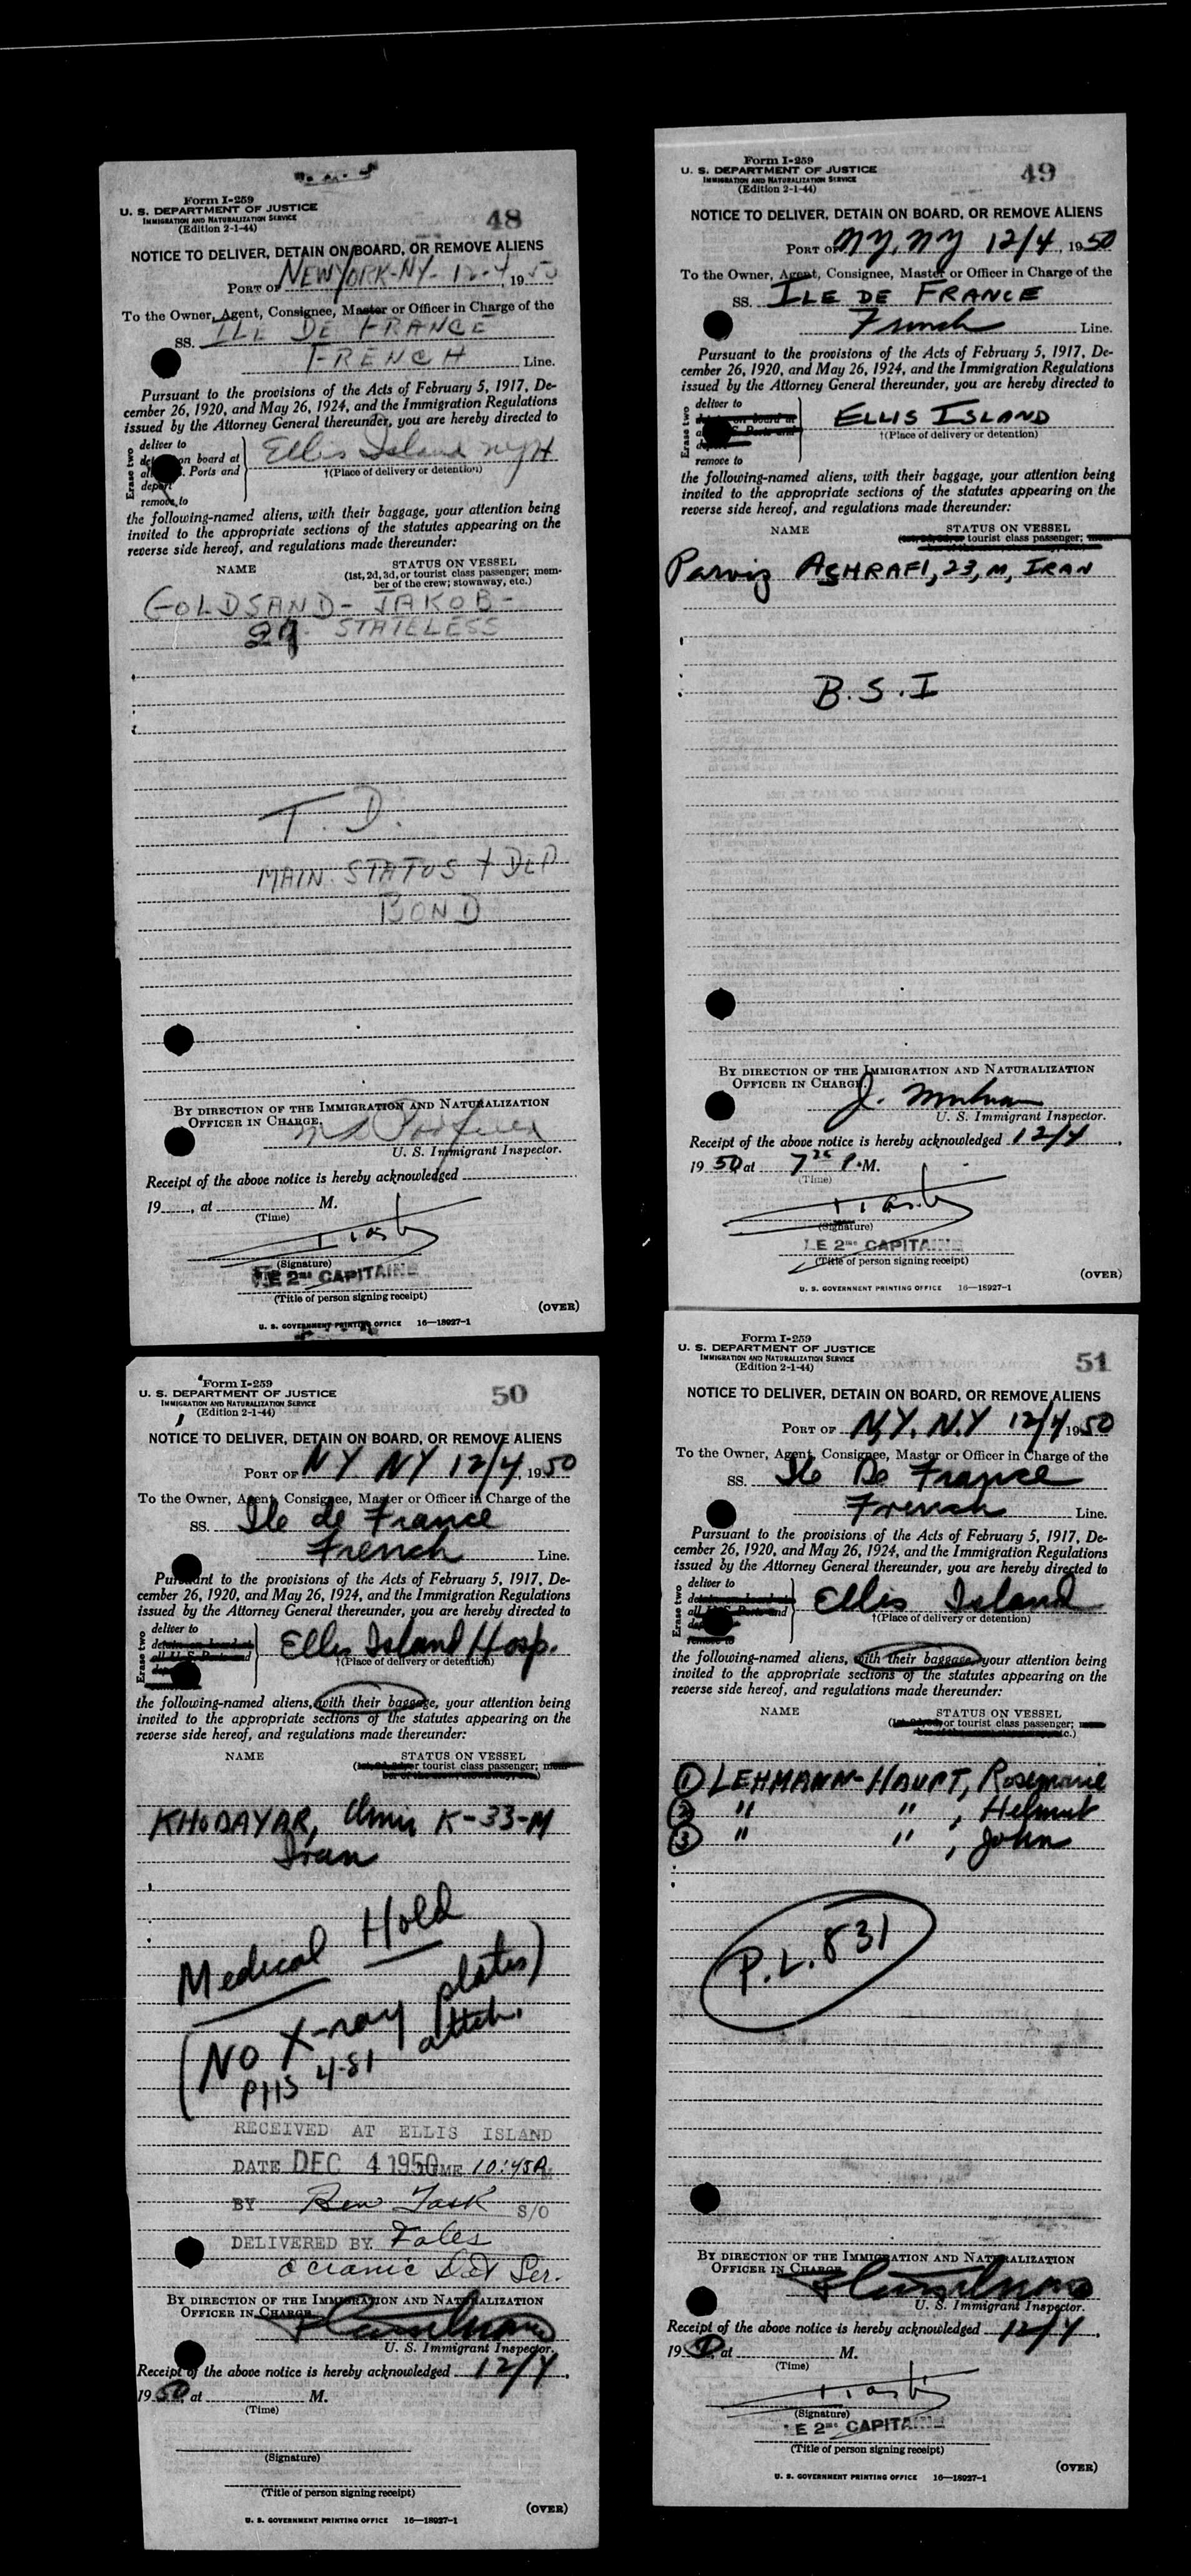 Form I-259
U. S. DEPARTMENT OF JUSTICE
IMMIGRATION AND NATURALIZATION SERVICE
(Edition 2-1-44)
48
NOTICE TO DELIVER, DETAIN ON BOARD, OR REMOVE ALIENS
PORT OF NEW YORK-NY- 12-4, 1950
To the Owner, Agent, Consignee, Master or Officer in Charge of the
SS. ILE DE FRANCE
FRENCH Line.
Pursuant to the provisions of the Acts of February 5, 1917, De-
cember 26, 1920, and May 26, 1924, and the Immigration Regulations
issued by the Attorney General thereunder, you are hereby directed to
Erase two
deliver to
detain on board at
all U. S. Ports and
deport
remove to
Ellis Island NYH
†(Place of delivery or detention)
the following-named aliens, with their baggage, your attention being
invited to the appropriate sections of the statutes appearing on the
reverse side hereof, and regulations made thereunder:
NAME
STATUS ON VESSEL
(1st, 2d, 3d, or tourist class passenger; mem-
ber of the crew; stowaway, etc.)
GOLDSAND- JAKOB-
STATELESS
T. D.
MAIN. STATUS + DEP
BOND
BY DIRECTION OF THE IMMIGRATION AND NATURALIZATION
OFFICER IN CHARGE.
U. S. Immigrant Inspector.
Receipt of the above notice is hereby acknowledged
19, at M.
(Time)
(Signature)
LE 2me CAPITAINE
(Title of person signing receipt)
(OVER)
U. S. GOVERNMENT PRINTING OFFICE 16—18927-1
Form I-259
U. S. DEPARTMENT OF JUSTICE
IMMIGRATION AND NATURALIZATION SERVICE
(Edition 2-1-44)
49
NOTICE TO DELIVER, DETAIN ON BOARD, OR REMOVE ALIENS
PORT OF NY, NY 12/4, 1950
To the Owner, Agent, Consignee, Master or Officer in Charge of the
SS. ILE DE FRANCE
French Line.
Pursuant to the provisions of the Acts of February 5, 1917, De-
cember 26, 1920, and May 26, 1924, and the Immigration Regulations
issued by the Attorney General thereunder, you are hereby directed to
Erase two
deliver to
remove to
ELLIS ISLAND
†(Place of delivery or detention)
the following-named aliens, with their baggage, your attention being
invited to the appropriate sections of the statutes appearing on the
reverse side hereof, and regulations made thereunder:
NAME
STATUS ON VESSEL
tourist class passenger;
Parviz ASHRAFI, 23, M, IRAN
B.S.I
BY DIRECTION OF THE IMMIGRATION AND NATURALIZATION
OFFICER IN CHARGE.
U. S. Immigrant Inspector.
Receipt of the above notice is hereby acknowledged 12/4,
1950 at 7 25 P.M.
(Time)
(Signature)
LE 2me CAPITAINE
(Title of person signing receipt)
(OVER)
U. S. GOVERNMENT PRINTING OFFICE 16—18927-1
Form I-259
U. S. DEPARTMENT OF JUSTICE
IMMIGRATION AND NATURALIZATION SERVICE
(Edition 2-1-44)
50
NOTICE TO DELIVER, DETAIN ON BOARD, OR REMOVE ALIENS
PORT OF NY NY 12/4, 1950
To the Owner, Agent, Consignee, Master or Officer in Charge of the
SS. Ile de France
French Line.
Pursuant to the provisions of the Acts of February 5, 1917, De-
cember 26, 1920, and May 26, 1924, and the Immigration Regulations
issued by the Attorney General thereunder, you are hereby directed to
Erase two
deliver to
detain on board at
all U. S. Ports and
Ellis Island Hosp.
†(Place of delivery or detention)
the following-named aliens, with their baggage, your attention being
invited to the appropriate sections of the statutes appearing on the
reverse side hereof, and regulations made thereunder:
NAME
STATUS ON VESSEL
or tourist class passenger;
KHODAYAR, Amir K-33-M
Iran
Medical Hold
(NO X-ray plates)
PHS 4-81 attch.
RECEIVED AT ELLIS ISLAND
DATE DEC 4 1950 TIME 10:45A
BY Ben Task S/O
DELIVERED BY Fales
Oceanic Det Ser.
BY DIRECTION OF THE IMMIGRATION AND NATURALIZATION
OFFICER IN CHARGE.
U. S. Immigrant Inspector.
Receipt of the above notice is hereby acknowledged 12/4,
1950, at M.
(Time)
(Signature)
(Title of person signing receipt)
(OVER)
U. S. GOVERNMENT PRINTING OFFICE 16—18927-1
Form I-259
U. S. DEPARTMENT OF JUSTICE
IMMIGRATION AND NATURALIZATION SERVICE
(Edition 2-1-44)
51
NOTICE TO DELIVER, DETAIN ON BOARD, OR REMOVE ALIENS
PORT OF N.Y. N.Y 12/4 1950
To the Owner, Agent, Consignee, Master or Officer in Charge of the
SS. Ile De France
French Line.
Pursuant to the provisions of the Acts of February 5, 1917, De-
cember 26, 1920, and May 26, 1924, and the Immigration Regulations
issued by the Attorney General thereunder, you are hereby directed to
Erase two
deliver to
detain on board at
all U. S. Ports and
remove to
Ellis Island
†(Place of delivery or detention)
the following-named aliens, with their baggage, your attention being
invited to the appropriate sections of the statutes appearing on the
reverse side hereof, and regulations made thereunder:
NAME
STATUS ON VESSEL
or tourist class passenger;
① LEHMANN-HAUPT, Rosemarie
② " " , Helmut
③ " " , John
P.L. 831
BY DIRECTION OF THE IMMIGRATION AND NATURALIZATION
OFFICER IN CHARGE.
U. S. Immigrant Inspector.
Receipt of the above notice is hereby acknowledged 12/4,
1950, at M.
(Time)
(Signature)
LE 2me CAPITAINE
(Title of person signing receipt)
(OVER)
U. S. GOVERNMENT PRINTING OFFICE 16—18927-1